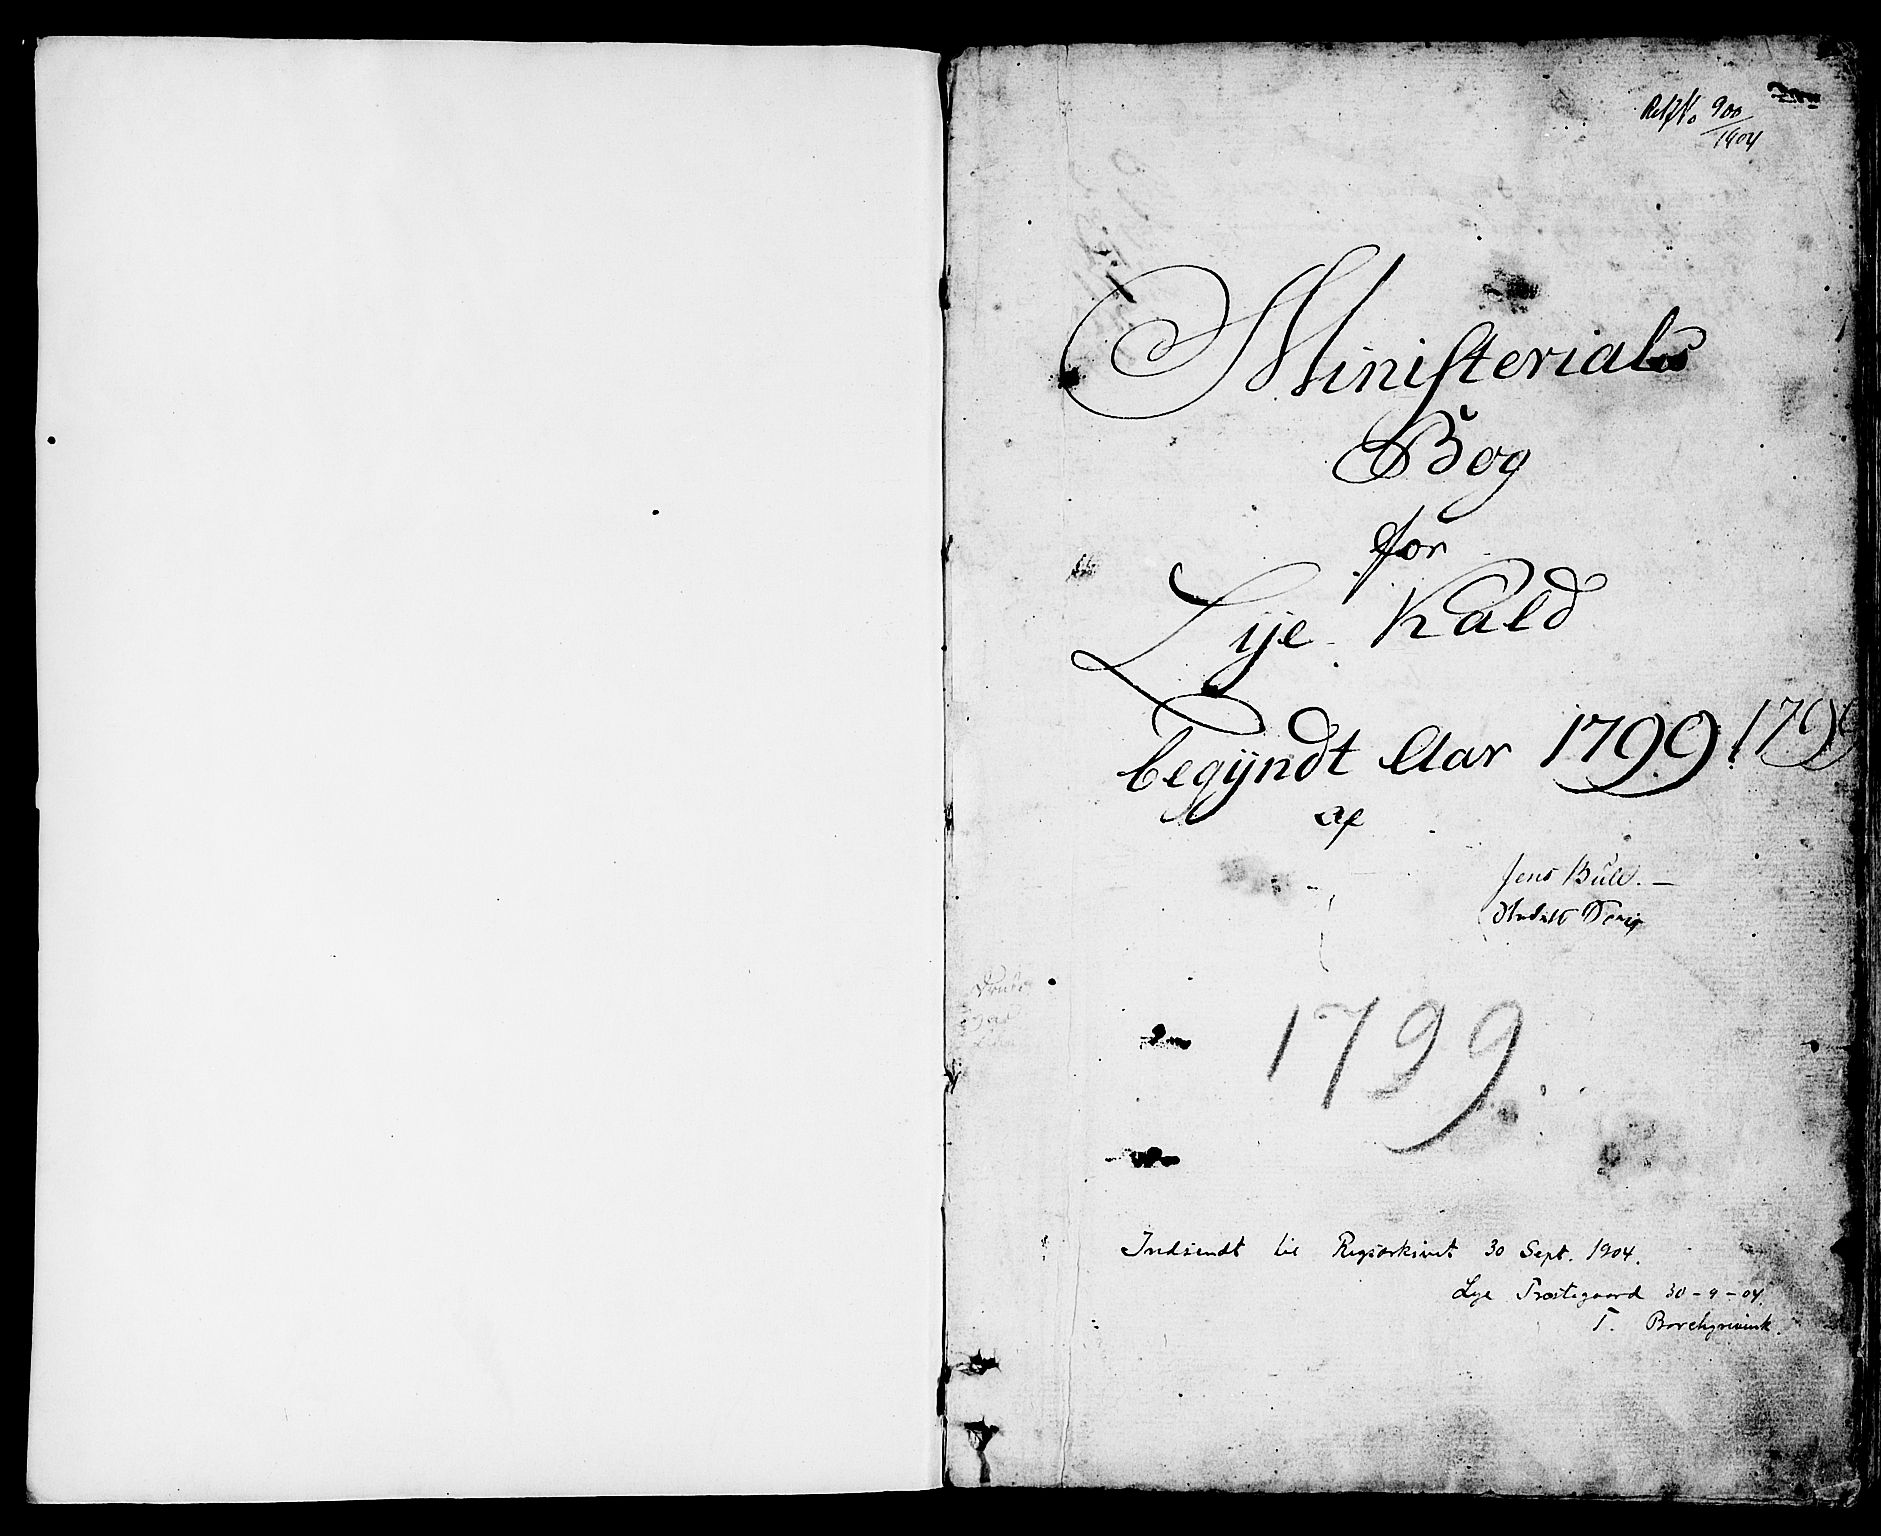 900
1904
Ministerial
Bog
for
Lye Kald
begyndt Aar 1799 1799
af
Jens Bull.
1799
Indsendt til Rigsarkivet 30 Sept. 1904.
Lye Præstegaard 30-9-04.
T. Borchgrevink.